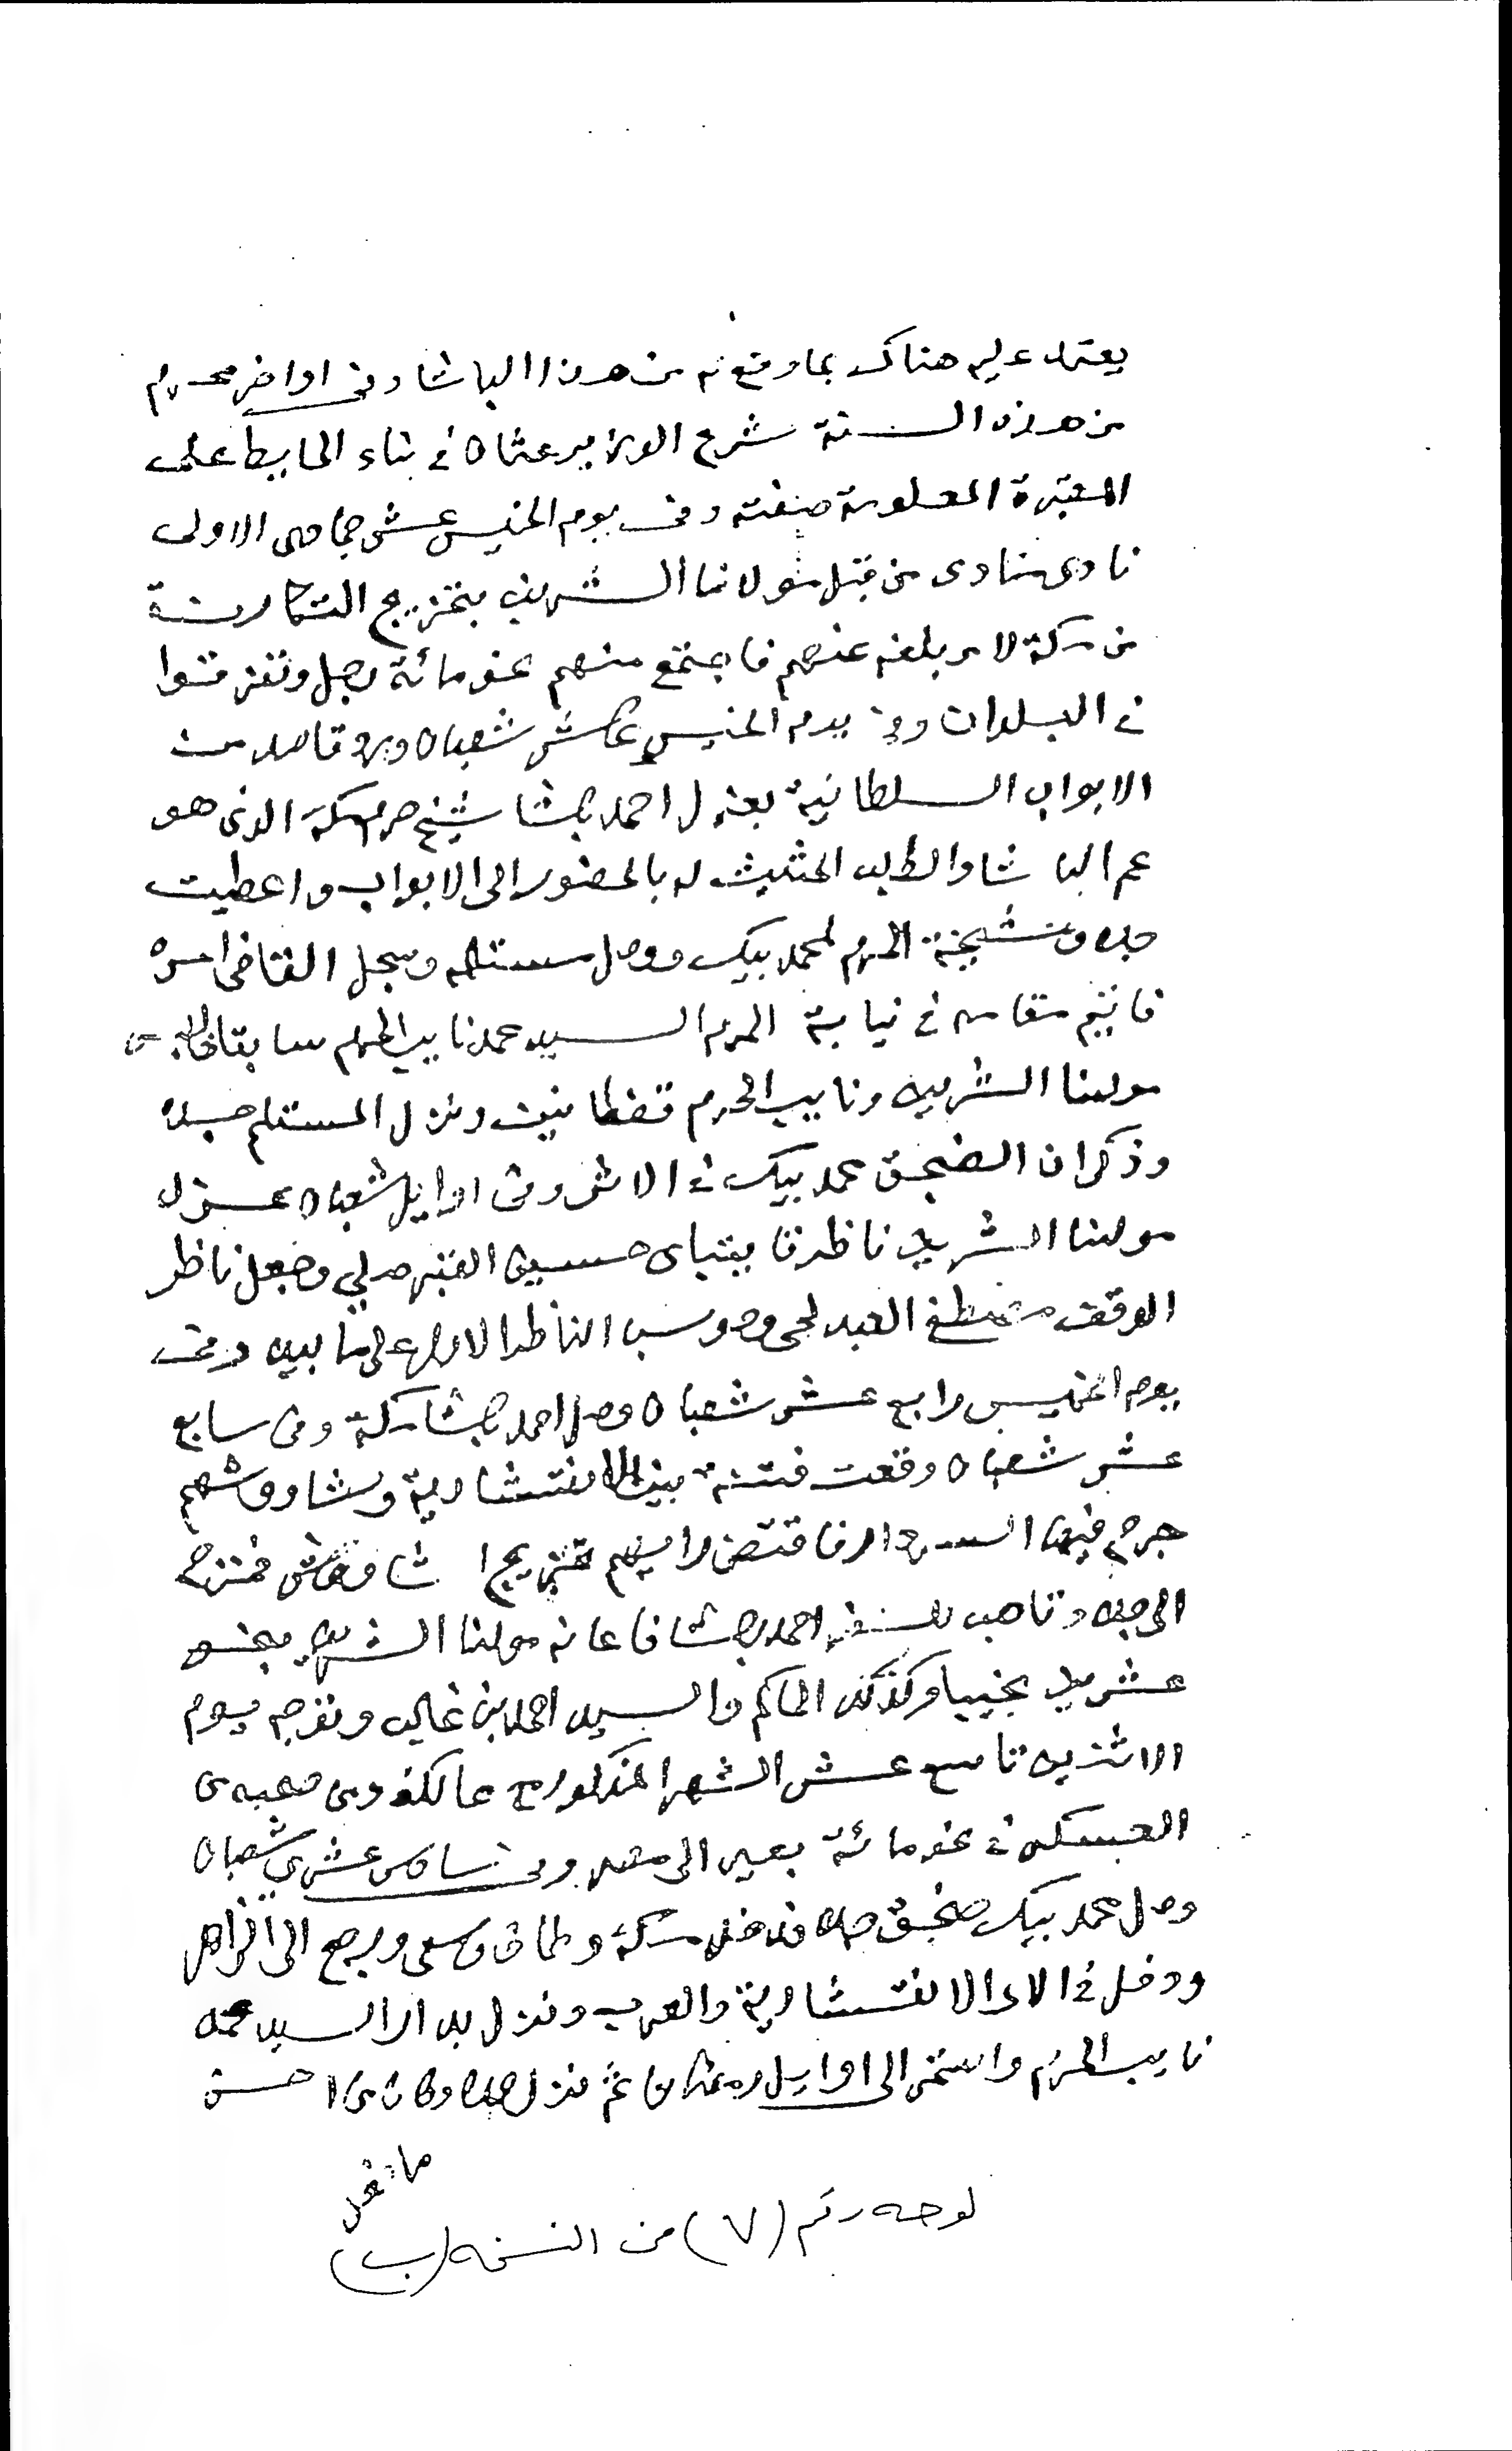 يعتمد عليه هناك بما وقع له من هذا الباشا وفى اواخر محرم
من هذه السنة شرع الوزير عثمان في بناء الحايط على
المقبرة المعلومة صفته وفى يوم الخميس عشر جمادى الاولى
نادى منادى من قبل مولانا الشريف بتخريج التكارنة
من مكة لامر بلغه عنهم فاجتمع منهم نحو مائة رجل وتفرقوا
في البلدان وفي يوم الخميس عاشر شعبان ورد قاصد من
الابواب السلطانية بعزل احمد باشا شيخ حرم مكة الذى هو
عم الباشا والطلب الحثيث له بالحضور الى الابواب واعطيت
جده ومشيخة الحرم لمحمد بيك ووصل مستلمه وسجل القاضى امره
فاقيم مقامه في نيابة الحرم السيد محمد نايب الحرم سابقا
مولنا الشريف ونايب الحرم قفطانين ونزل المستلم جده
وذكر ان الصنجق محمد بيك في الاثر وفى اوايل شعبان عزل
مولنا الشريف ناظر قايتباى حسين وجعل ناظر
الوقف مصطفى وهو الناظر الاول على ما بين وفى
يوم الخميس رابع عشر شعبان وصل احمد باشا مكة وفى سابع
عشر شعبان وقعت فتنة بين الانقشارية وشاووشهم
جرح فيها السردار فاقتضى رايهم تخريج الشاووش فخرج
الى جده وتاهب للسفر احمد باشا فاعانه مولنا الشريف بنحو
عشرين نجيبا وكذلك الحاكم والسيد احمد بن غالب وتوجه يوم
الاثنين تاسع عشر الشهر المذكور مع مماليكه ومن صحبه من
العسكر في نحو مائة بعير الى مصر وفى سادس عشرين شعبان
وصل محمد بيك صنجق جده فدخل مكة وطاف وسعى ورجع الى الزاهر
ودخل في الاى الانقشارية والعرب ونزل بدار السيد محمد
نايب الحرم واستمر الى اوايل رمضان ثم نزل جده وكان من احسن
ما فعل
لوحه رقم (٧) من النسخه (ب)